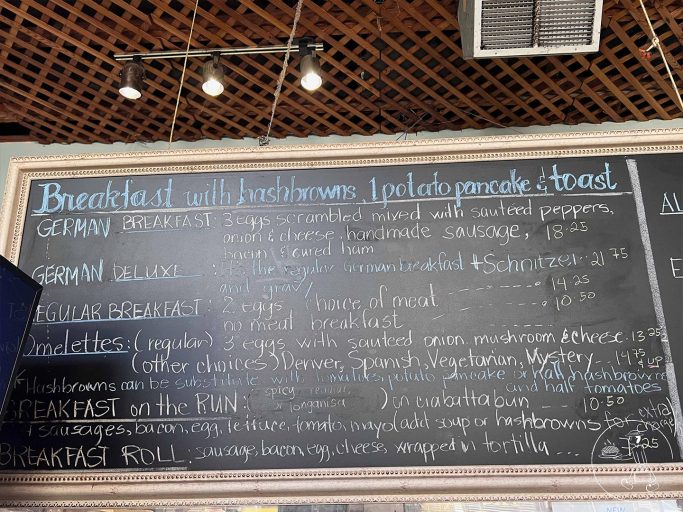 Breakfast with hashbrowns, 1 potato pancake & toast
GERMAN BREAKFAST: 3 eggs scrambled mixed with sauteed peppers,
onion & cheese, handmade sausage, 18.25
bacon & cured ham
GERMAN DELUXE: It's the regular German breakfast + Schnitzel .. 21.75
and gravy
REGULAR BREAKFAST: 2 eggs choice of meat 14.25
no meat breakfast 10.50
Omelettes: (regular) 3 eggs with sauteed onion, mushroom & cheese. 13.25
(other choices) Denver, Spanish, Vegetarian, Mystery... 14.75 & up
*Hashbrowns can be substitute with tomatoes, potato pancake or half hashbrowns
and half tomatoes
BREAKFAST on the RUN: (spicy
or longanisa) on ciabatta bun 10.50
sausages, bacon, egg, lettuce, tomato, mayo (add soup or hashbrowns for extra
charge
BREAKFAST ROLL: sausage, bacon, egg, cheese, wrapped in tortilla ...
AL
E
NEW